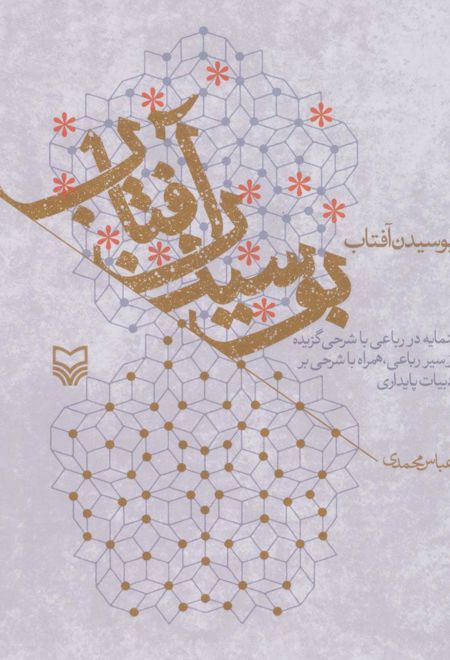 بوسیدن آفتاب
بوسیدن آفتاب
نمایه در رباعی با شرحی گزیده
ر سیر رباعی، همراه با شرحی بر
دبیات پایداری
عباس محمدی